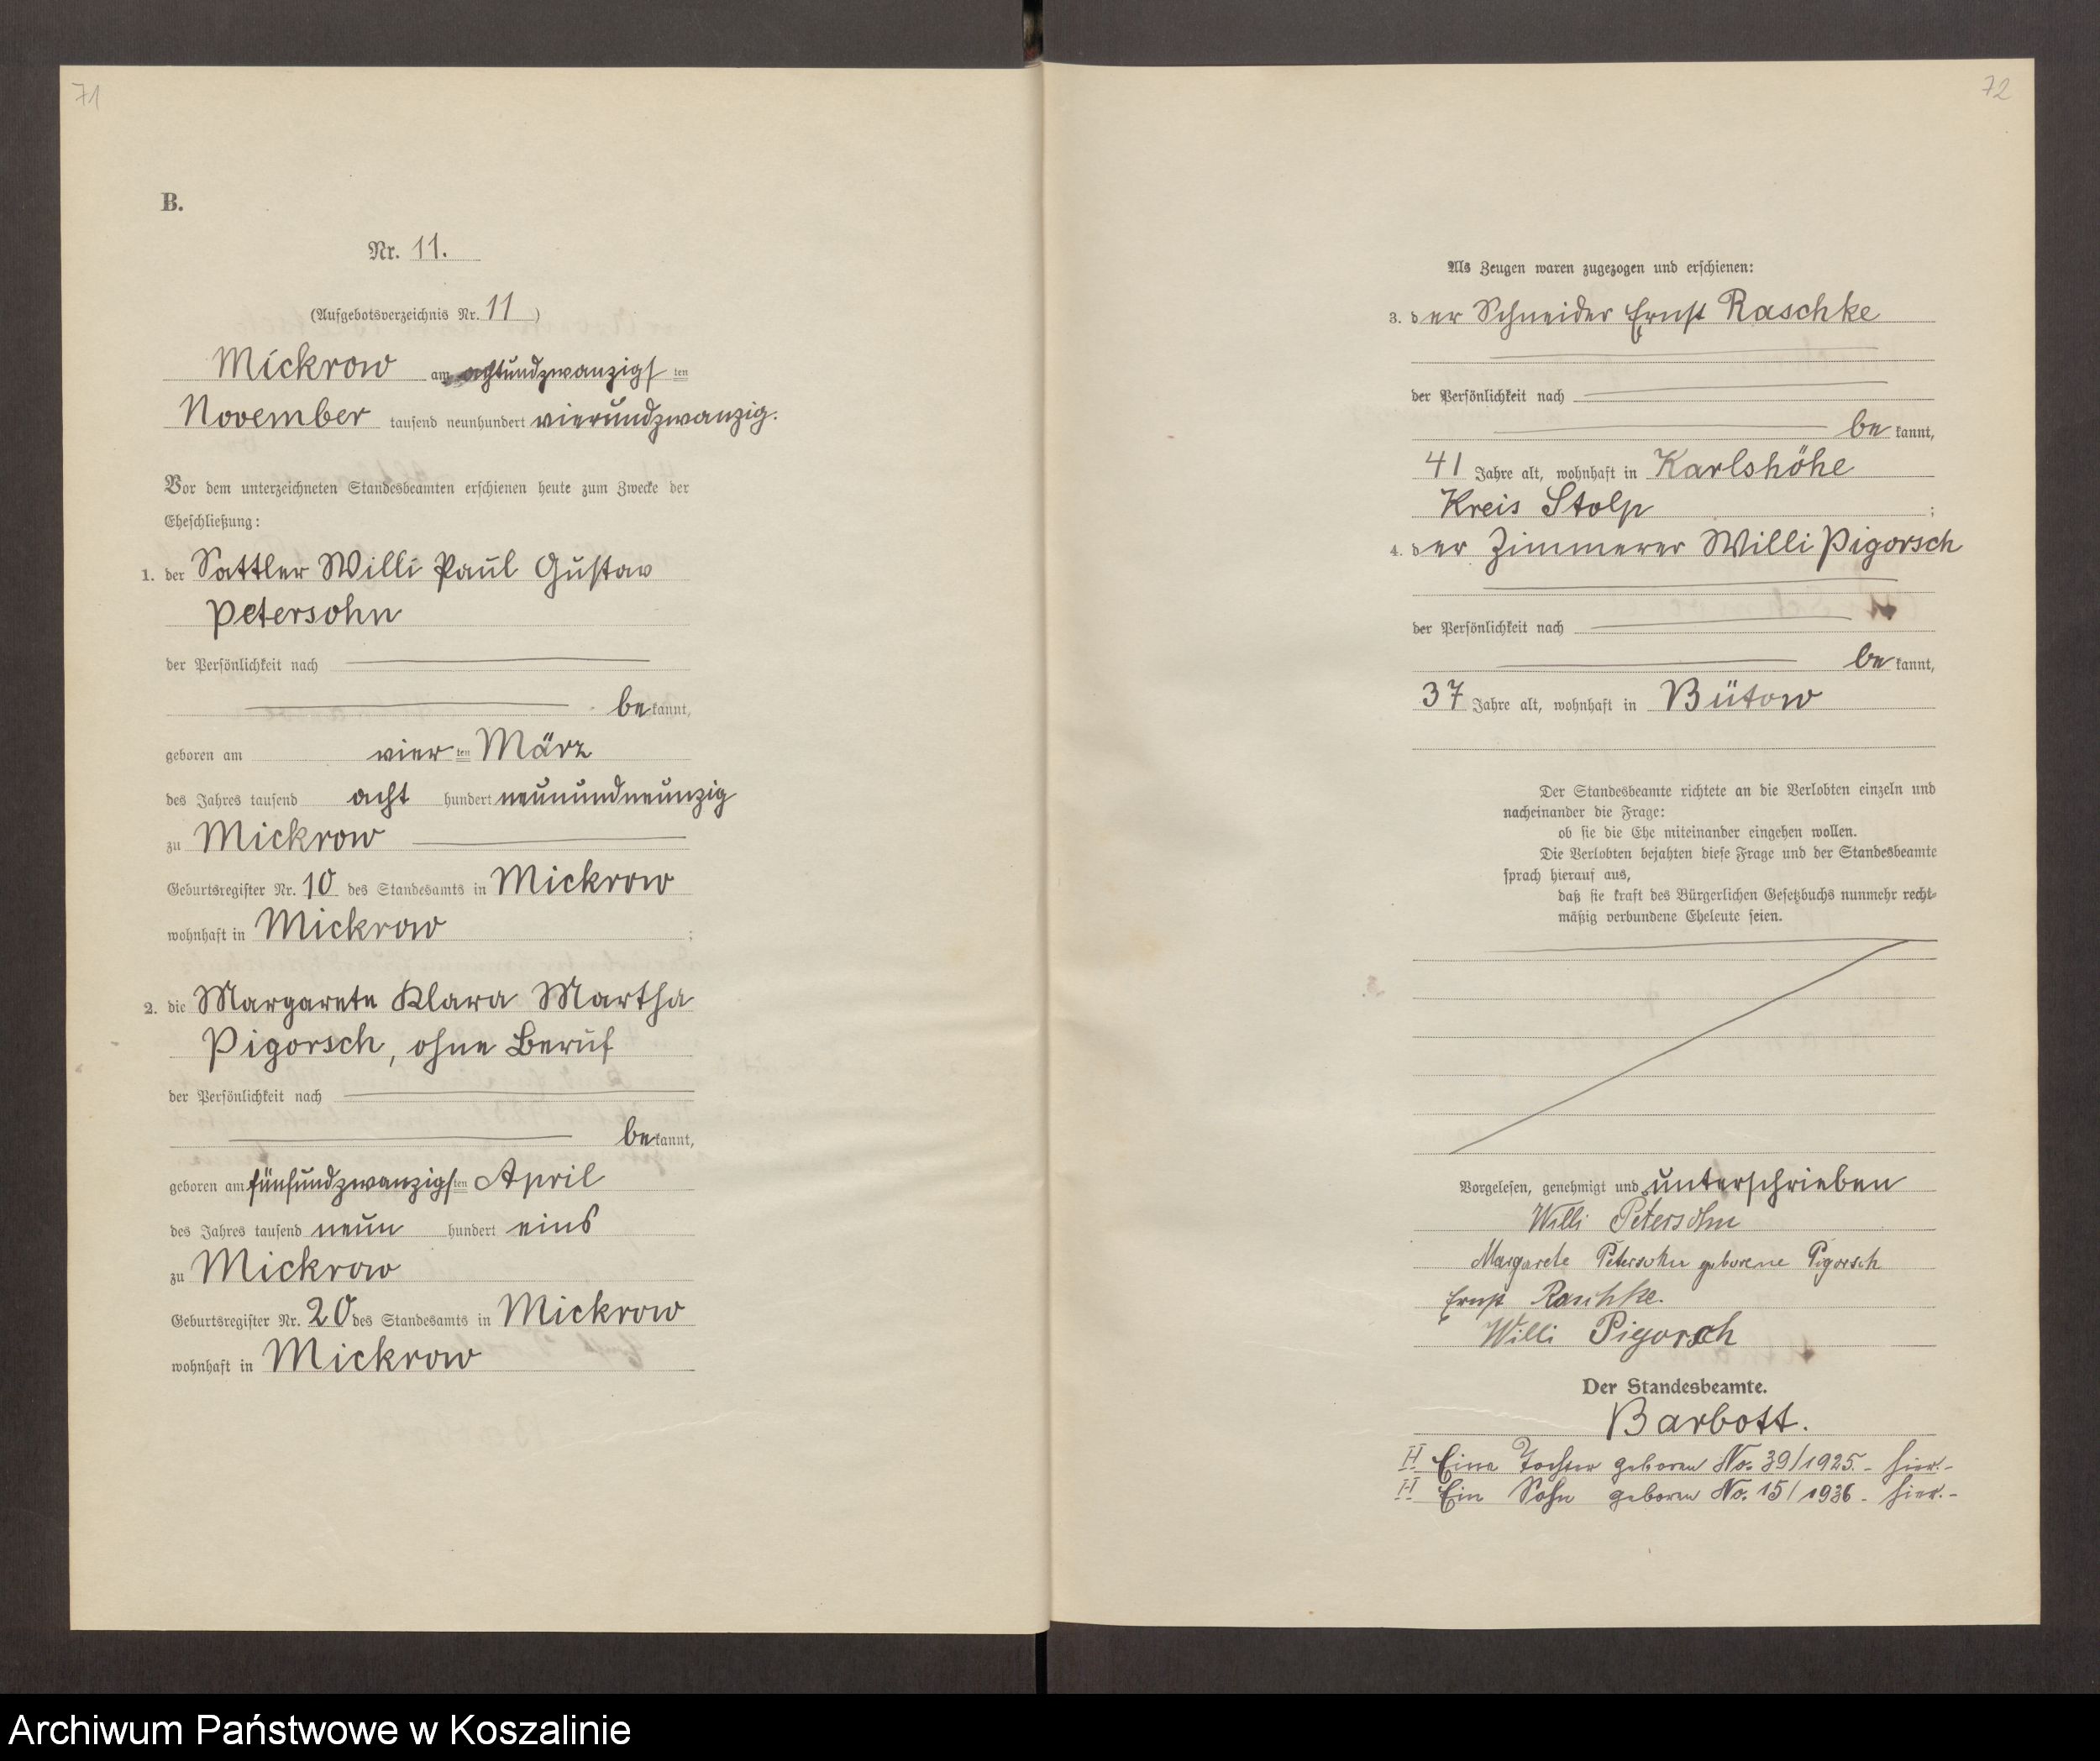 71
B.
Nr. 11.
(Aufgebotsverzeichnis Nr. 11)
Mickrow am achtundzwanzigsten
November tausend neunhundert vierundzwanzig.
Vor dem unterzeichneten Standesbeamten erschienen heute zum Zwecke der
Eheschließung:
1. der Sattler Willi Paul Gustav
Petersohn
der Persönlichkeit nach
bekannt,
geboren am vierten März
des Jahres tausend acht hundert neunundneunzig
zu Mickrow
Geburtsregister Nr. 10 des Standesamts in Mickrow
wohnhaft in Mickrow ;
2. die Margarete Klara Martha
Pigorsch, ohne Beruf
der Persönlichkeit nach
bekannt,
geboren am fünfundzwanzigsten April
des Jahres tausend neun hundert eins
zu Mickrow
Geburtsregister Nr. 20 des Standesamts in Mickrow
wohnhaft in Mickrow
72
Als Zeugen waren zugezogen und erschienen:
3. der Schneider Ernst Raschke
der Persönlichkeit nach
bekannt,
41 Jahre alt, wohnhaft in Karlshöhe
Kreis Stolp ;
4. der Zimmerer Willi Pigorsch
der Persönlichkeit nach
bekannt,
37 Jahre alt, wohnhaft in Bütow
Der Standesbeamte richtete an die Verlobten einzeln und
nacheinander die Frage:
ob sie die Ehe miteinander eingehen wollen.
Die Verlobten bejahten diese Frage und der Standesbeamte
sprach hierauf aus,
daß sie kraft des Bürgerlichen Gesetzbuchs nunmehr recht-
mäßig verbundene Eheleute seien.
Vorgelesen, genehmigt und unterschrieben
Willi Petersohn
Margarete Petersohn geborene Pigorsch
Ernst Raschke.
Willi Pigorsch
Der Standesbeamte.
Barbott.
H Eine Tochter geboren No. 39/1925.- hier.-
H Ein Sohn geboren No. 15/1936.- hier.-
Archiwum Państwowe w Koszalinie